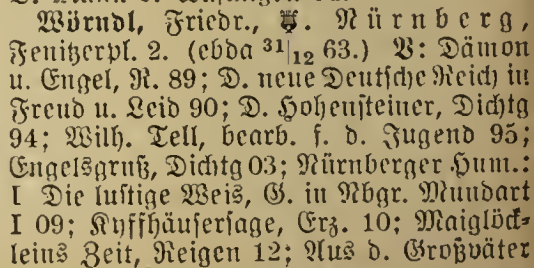 Wörndl, Friedr., Nürnberg,
Fenitzerpl. 2. (ebda 31|12 63.) V: Dämon
u. Engel, R. 89; D. neue Deutsche Reich in
Freud u. Leid 90; D. Hohensteiner, Dichtg
94; Wilh. Tell, bearb. f. d. Jugend 95;
Engelsgruß, Dichtg 03; Nürnberger Hum.:
I Die lustige Weis, G. in Nbgr. Mundart
I 09; Kyffhäusersage, Erz. 10; Maiglöck-
leins Zeit, Reigen 12; Aus d. Großväter